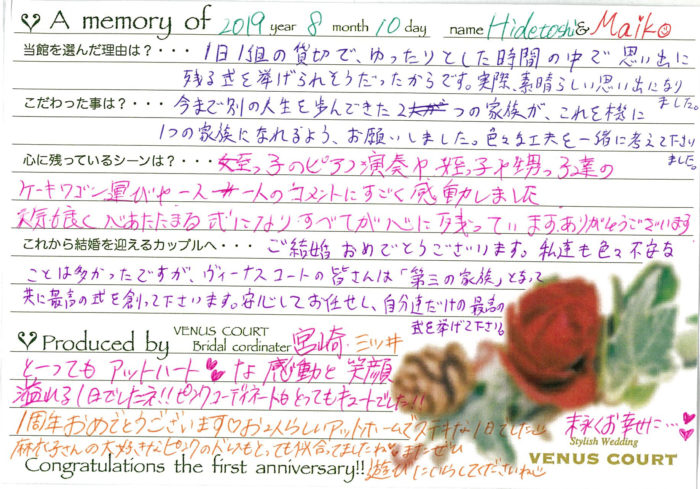 A memory of 2019 year 8 month 10 day name Hidetoshi & Maiko
当館を選んだ理由は？・・・ 1日1組の貸切で、ゆったりとした時間の中で思い出に
残る式を挙げられそうだったからです。実際、素晴らしい思い出になり
ました。
こだわった事は？・・・ 今まで別の人生を歩んできた2つの家族が、これを機に
1つの家族になれるよう、お願いしました。色々な工夫を一緒に考えて下さり
ました。
心に残っているシーンは？・・・ 姪っ子のピアノ演奏や、姪っ子や甥っ子達の
ケーキワゴン運びや一人一人のコメントにすごく感動しました
天気も良く心あたたまる式になりすべてが心に残っています。ありがとうございます
これから結婚を迎えるカップルへ・・・ ご結婚おめでとうございます。私達も色々不安な
ことは多かったですが、ヴィーナスコートの皆さんは「第三の家族」となって
共に最高の式を創って下さいます。安心してお任せし、自分達だけの最高の
式を挙げて下さい。
Produced by VENUS COURT Bridal cordinater 宮崎・三ツ井
とーってもアットハートな感動と笑顔
溢れる1日でしたネ!!ピンクコーディネートもとってもキュートでした!!
1周年おめでとうございます♡お2人らしいアットホームでステキな1日でした
麻衣子さんの大好きなピンクのドレスもとっても似合ってましたね。またぜひ
末永くお幸せに…
Stylish Wedding
VENUS COURT
Congratulations the first anniversary!! 遊びにいらしてくださいね